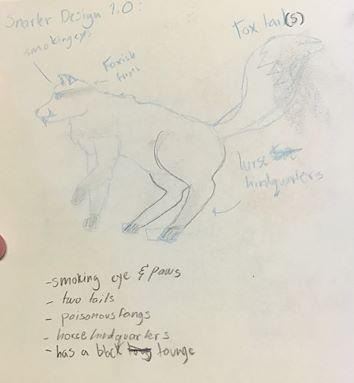 Snarler Design 1.0:
smoking eye
Foxish
fox tail(s)
hindquarters
-smoking eye & paws
- two tails
- poisonous fangs
- horse hindquarters
- has a black tounge